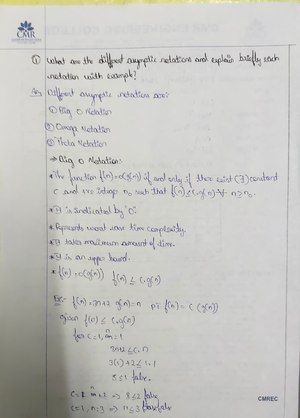 CMR
① What are the different asymptotic notations and explain briefly each
notation with example?
Ans Different asymptotic notations are:
① Big O Notation
② Omega Notation
③ Theta Notation
⇒ Big O Notation:
* The function f(n)=O(g(n)) if and only if there exist (∃) constant
C and +ve integer n₀ such that f(n) ≤ C.g(n) ∀ n≥n₀.
* It is indicated by 'O'.
* Represents worst case time complexity.
* It takes maximum amount of time.
* It is an upper bound.
* f(n) = O(g(n))  f(n) ≤ c.g(n)
Ex:- f(n) = 3n+2 g(n)=n
given f(n) ≤ C.g(n)
for C=1, n=1
3n+2 ≤ C.n
3(1)+2 ≤ 1.1
5 ≤ 1 false.
false
C=1, n=3 ⇒ 11 ≤ 3 false
CMREC